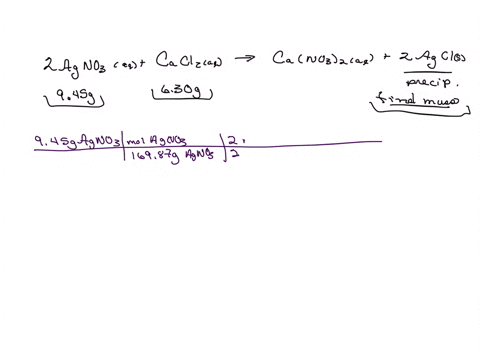 2 AgNO3 (aq) + CaCl2(aq) → Ca(NO3)2(aq) + 2 AgCl(s)
9.45g 6.30g precip.
find mass
9.45g AgNO3 | mol AgNO3 | 2
169.87g AgNO3 | 2